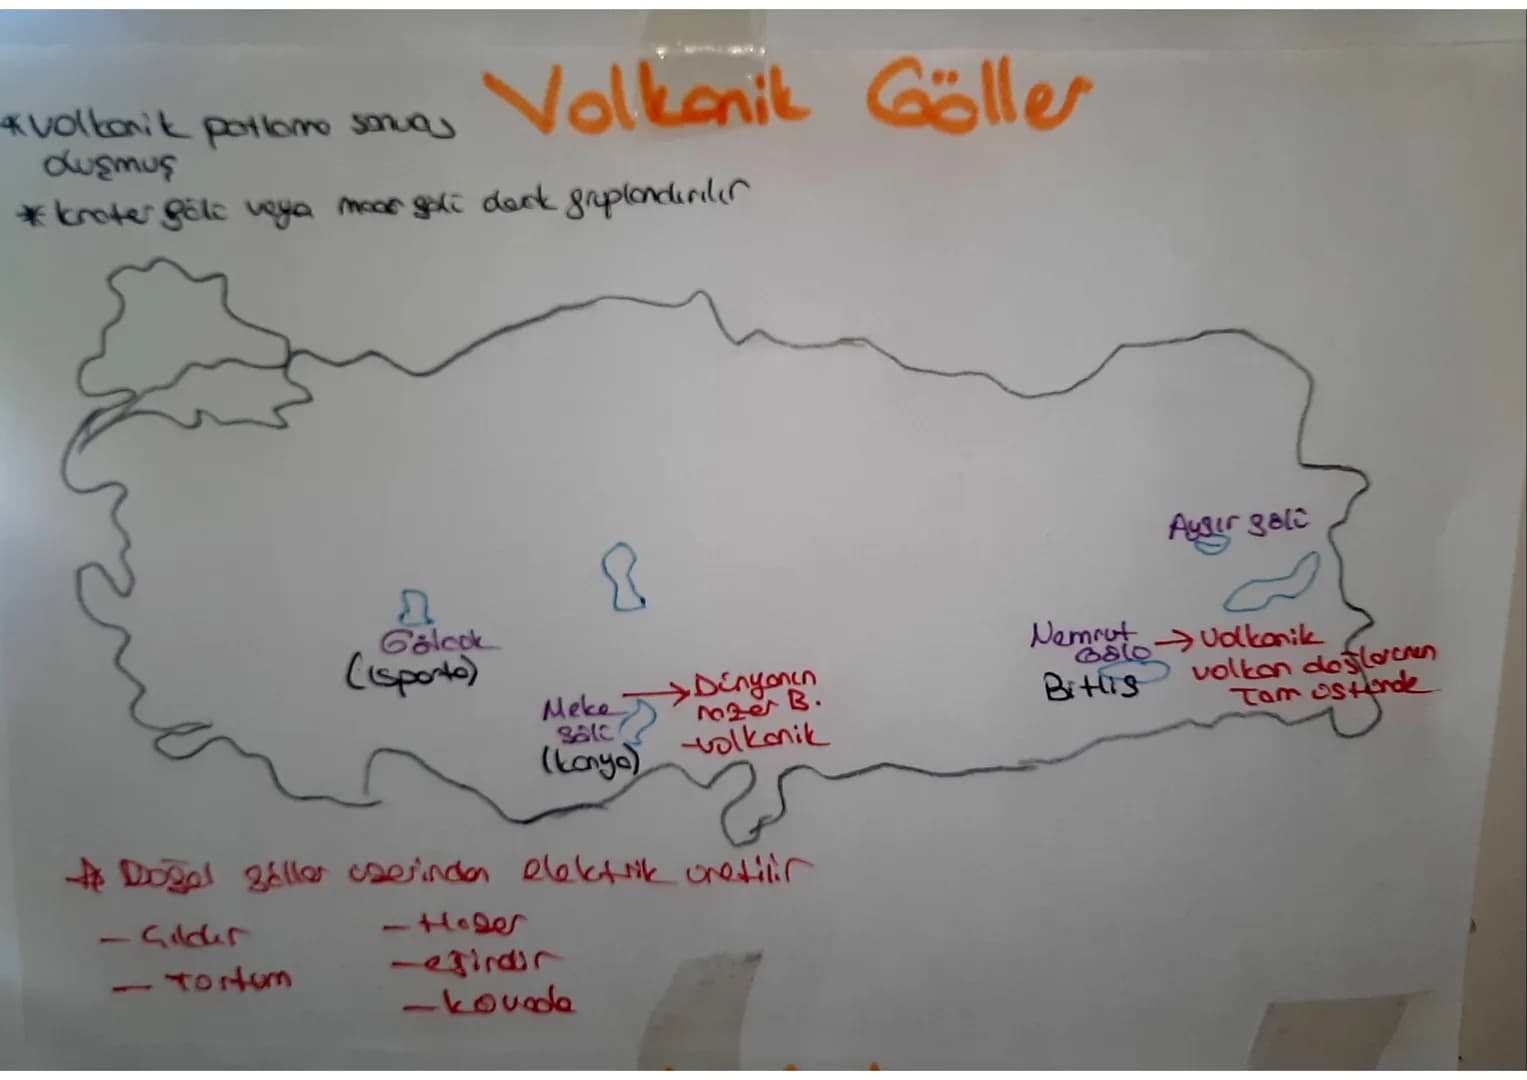 Volkanik Göller
*volkanik patlama sonucu
oluşmuş
* krater gölü veya maar gölü gruplandırılır
Aygır gölü
Gölcük
(Isparta)
Meke
gölü
(konya)
→ Dünyanın
nazar B.
-volkanik
Nemrut
Gölü
Bitlis
→ Volkanik
volkan dağlarının
Tam üstünde
* Doğal göller üzerinden elektrik üretilir
- Çıldır
- Tortum
- Hazar
- eğirdir
- kovada